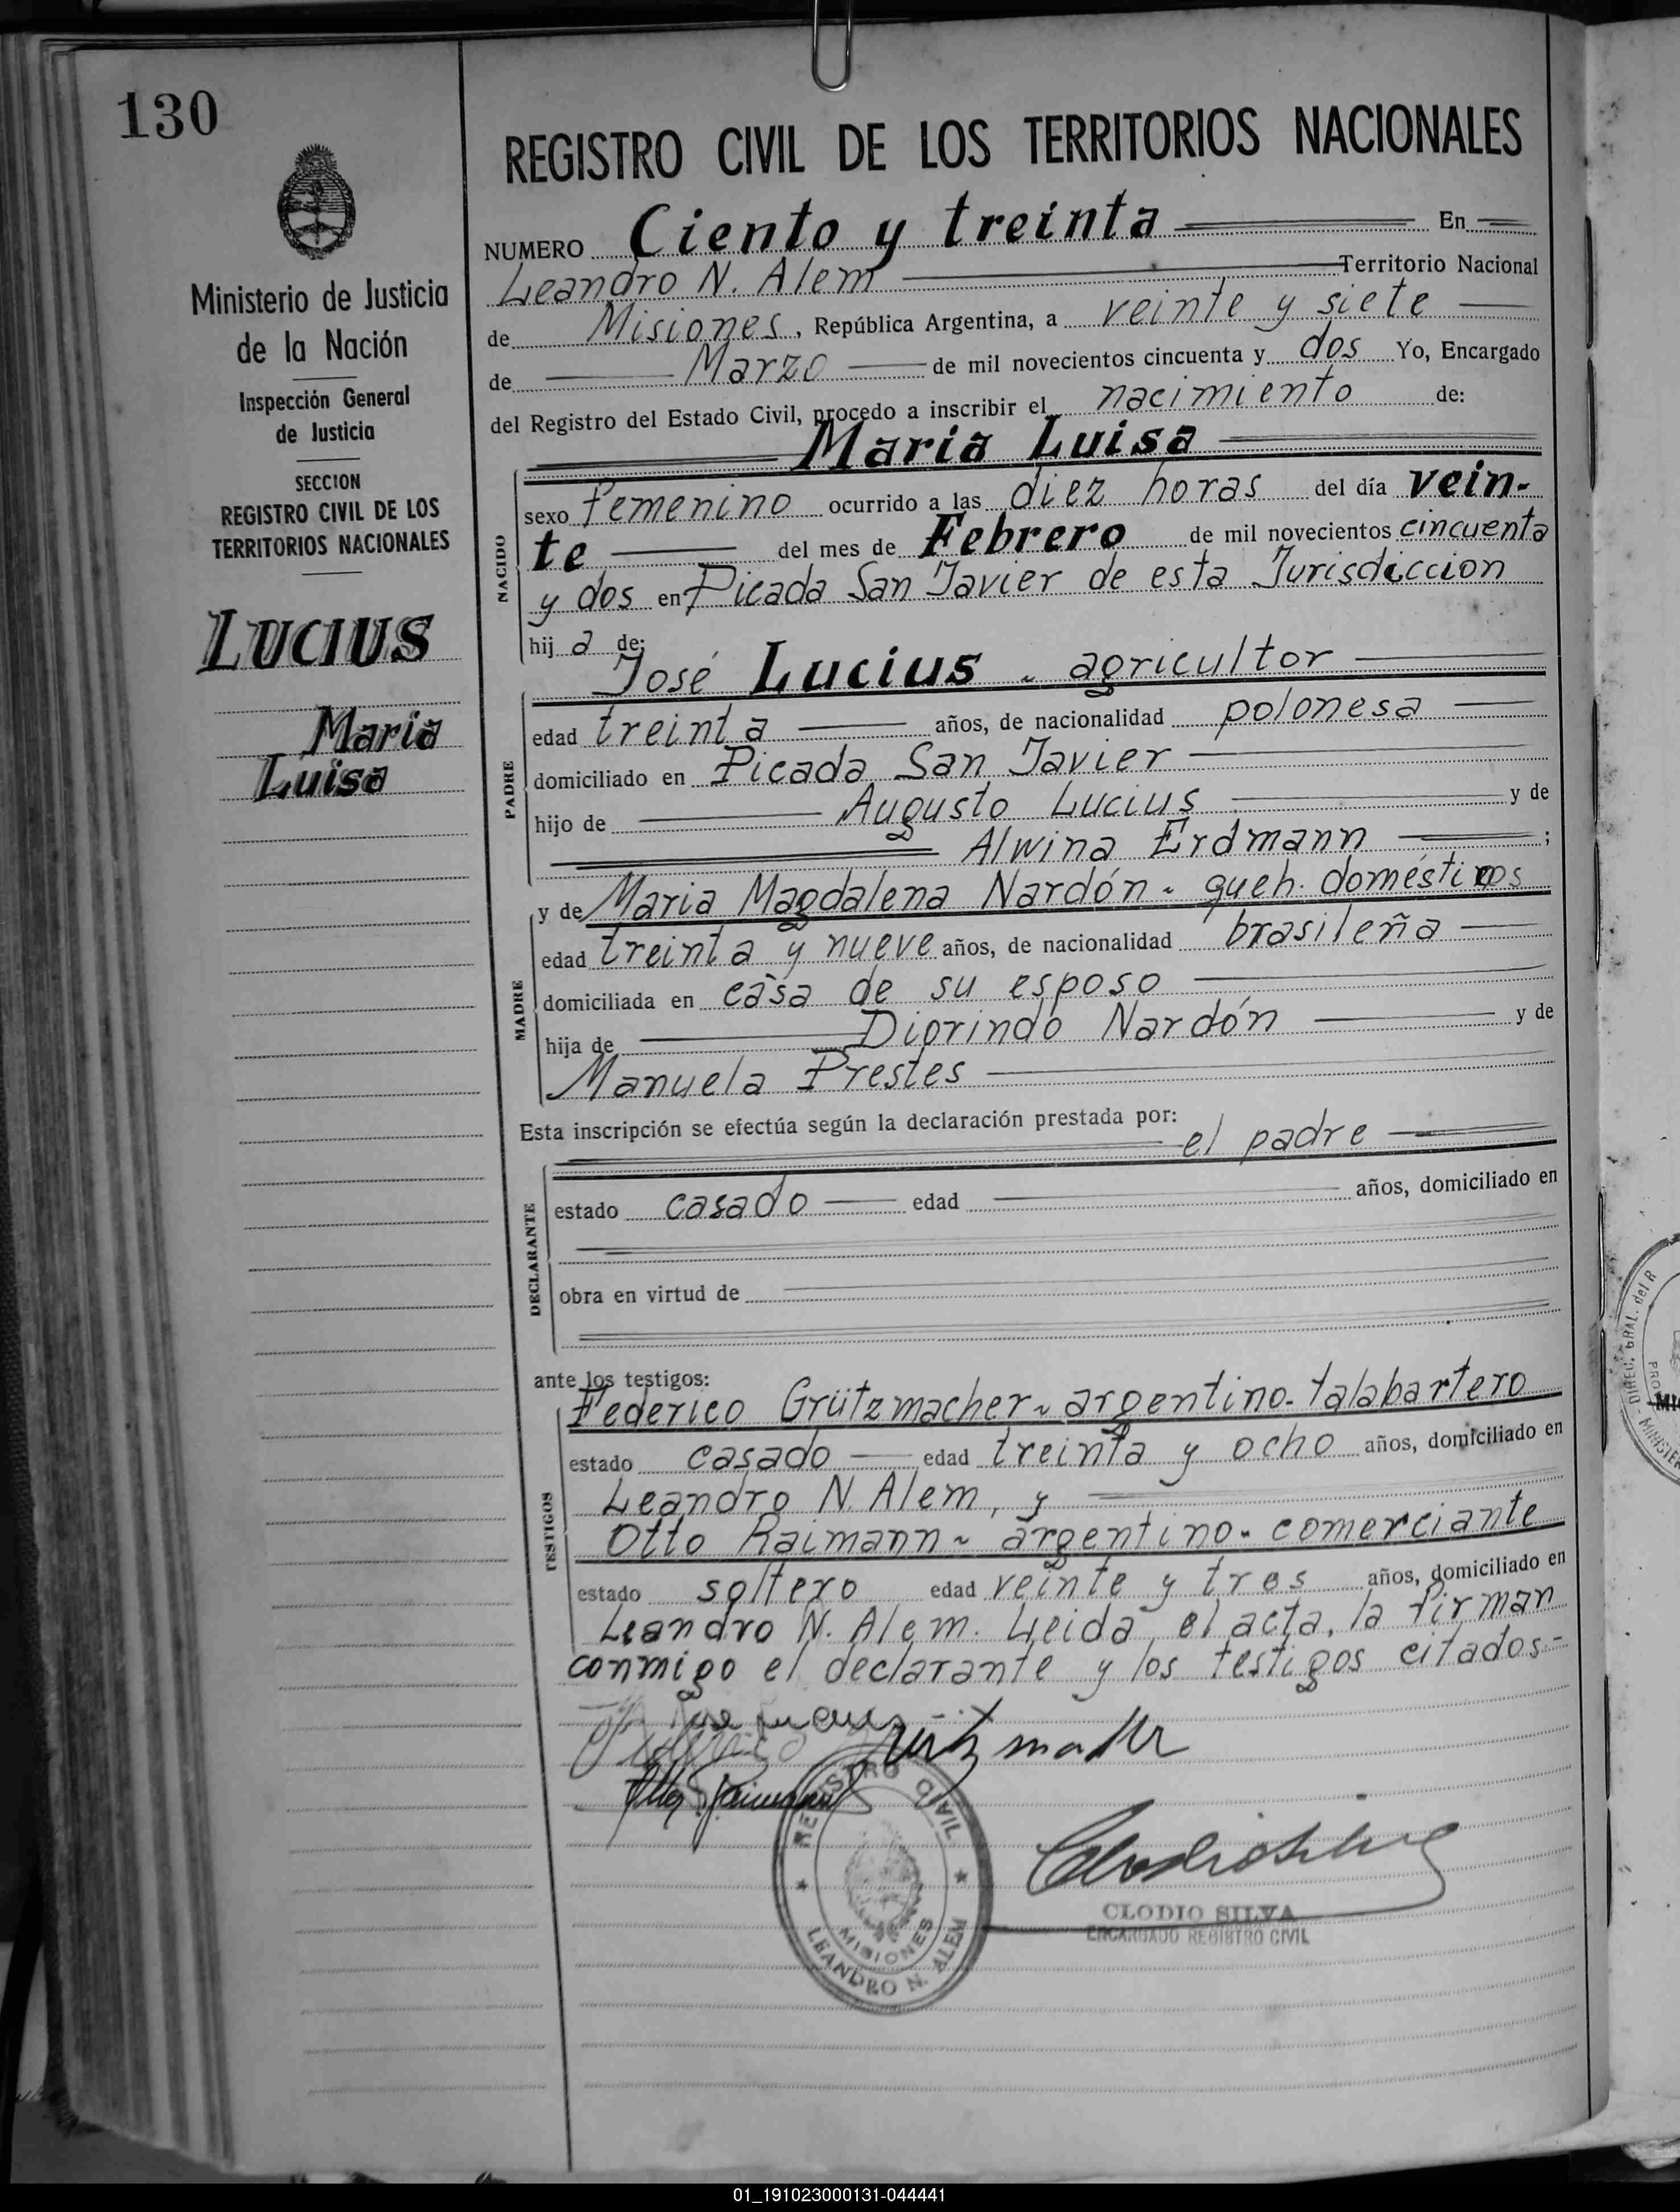 130
Ministerio de Justicia
de la Nación
Inspección General
de Justicia
SECCION
REGISTRO CIVIL DE LOS
TERRITORIOS NACIONALES
LUCIUS
Maria
Luisa
REGISTRO CIVIL DE LOS TERRITORIOS NACIONALES
NUMERO Ciento y treinta En
Leandro N. Alem Territorio Nacional
de Misiones, República Argentina, a veinte y siete
de Marzo de mil novecientos cincuenta y dos Yo, Encargado
del Registro del Estado Civil, procedo a inscribir el nacimiento de:
Maria Luisa
NACIDO
sexo femenino ocurrido a las diez horas del día vein-
te del mes de Febrero de mil novecientos cincuenta
y dos en Picada San Javier de esta Jurisdiccion
hij a de:
José Lucius - agricultor
PADRE
edad treinta años, de nacionalidad polonesa
domiciliado en Picada San Javier
hijo de Augusto Lucius y de
Alwina Erdmann ;
y de Maria Magdalena Nardón - queh. domésticos
MADRE
edad treinta y nueve años, de nacionalidad brasileña
domiciliada en casa de su esposo
hija de Diorindo Nardón y de
Manuela Prestes
Esta inscripción se efectúa según la declaración prestada por:
el padre
DECLARANTE
estado casado edad años, domiciliado en
obra en virtud de
ante los testigos:
Federico Grützmacher - argentino - talabartero
TESTIGOS
estado casado edad treinta y ocho años, domiciliado en
Leandro N. Alem, y
Otto Raimann - argentino - comerciante
estado soltero edad veinte y tres años, domiciliado en
Leandro N. Alem. Leida el acta, la firman
conmigo el declarante y los testigos citados-
REGISTRO CIVIL
MISIONES
LEANDRO N. ALEM
CLODIO SILVA
ENCARGADO REGISTRO CIVIL
DIREC. GRAL. del R
01_191023000131-044441